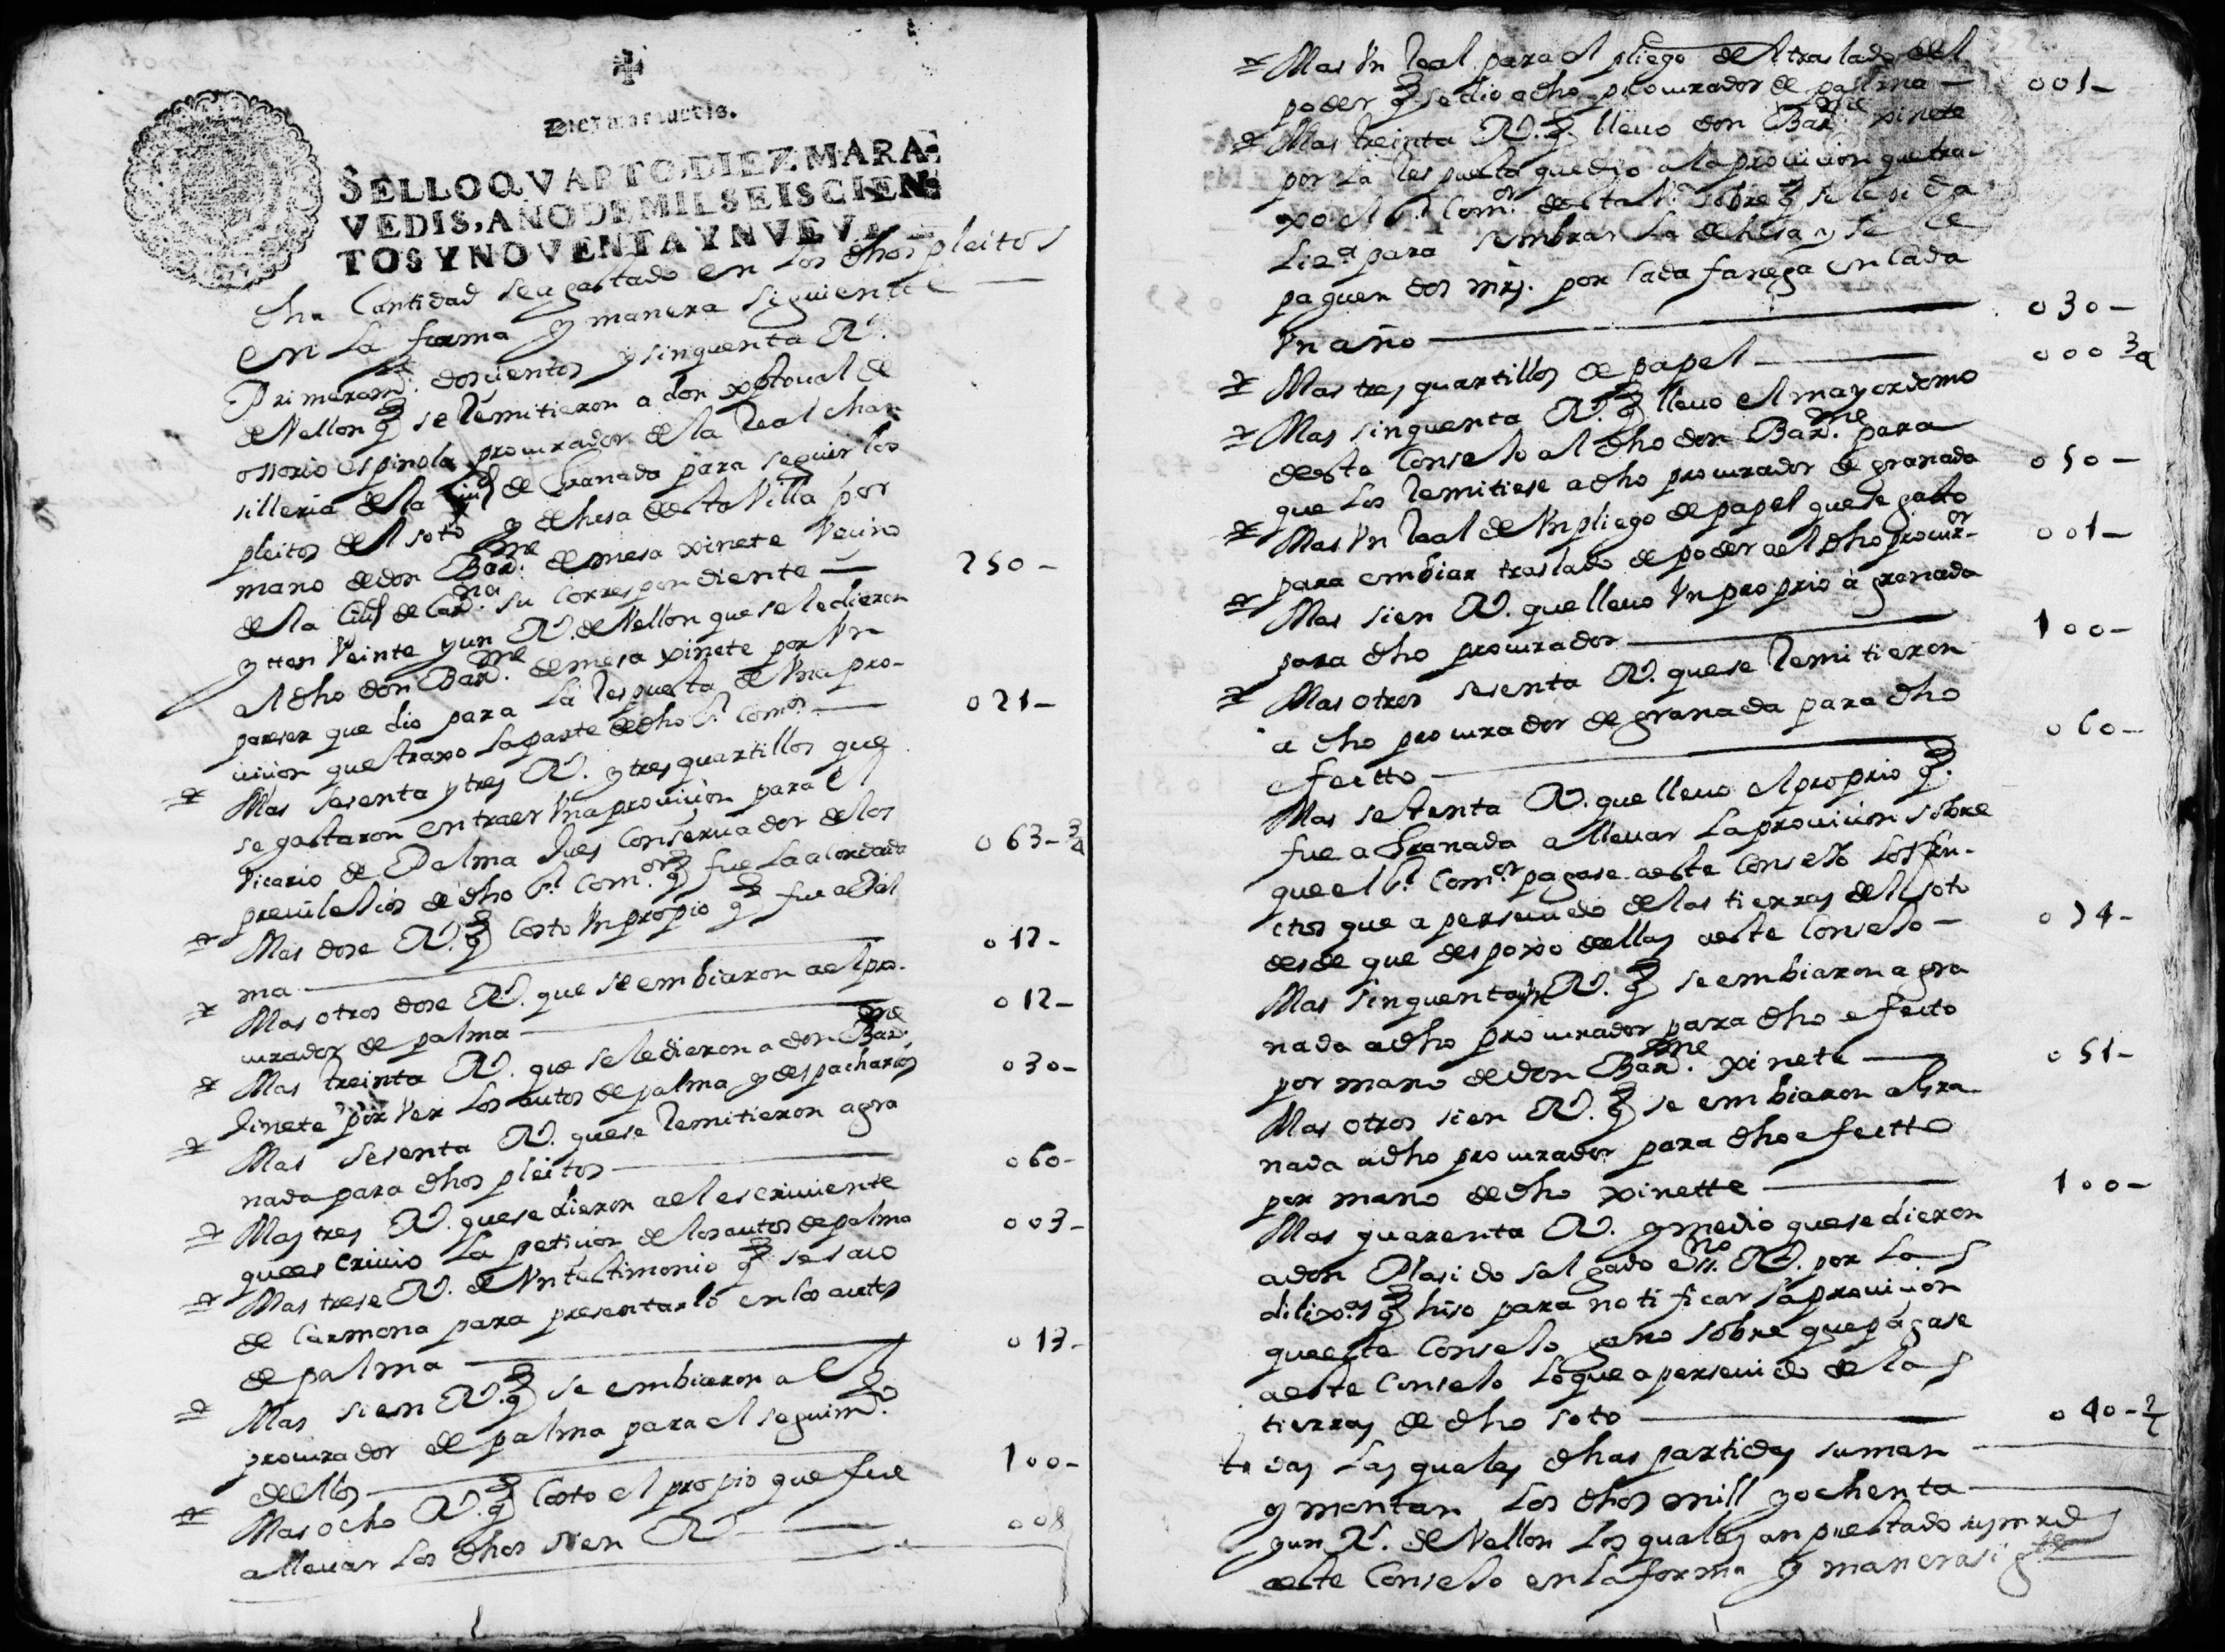 Diez maravedis.
SELLO QVARTO, DIEZ MARA-
VEDIS, AÑO DE MIL SEISCIEN-
TOS Y NOVENTA Y NVEVE
dha Cantidad se a gastado en los dhos pleitos
en la forma y manera siguiente
Primeramte. dosientos y sinquenta Rs.
de Vellon q se Remitieron a don xptoual de
ossorio espinola procurador de la Real chan
silleria de la Ciud de Granada para seguir los
pleitos del soto y dehesa desta Villa por
mano de don Barme. de mesa xinete Vecino
de la Ciud de Carna. su Correspondiente
250-
ytten Veinte y un Rs. de Vellon que se le dieron
al dho don Barme. de mesa xinete por Vn
pareser que dio para la Respuesta de Vna pro-
uision que traxo la parte de dho Sr. Comor.
021-
Mas sesenta y tres Rs. y tres quartillos que
se gastaron en traer Vna prouision para el
Vicario de Palma Jues Conseruador de los
preuilesios de dho Sr. Comor. q fue la acordada
063-3/4
Mas dose Rs. q Costo Vn propio q fue a Pal
ma
012-
Mas otros dose Rs. que se embiaron al pro-
curador de palma
012-
Mas treinta Rs. que se le dieron a don Barme.
Jinete por Ver los autos de palma y despacharlos
030-
Mas sesenta Rs. que se Remitieron a gra
nada para dhos pleitos
060-
Mas tres Rs. que se dieron al escriuiente
que escriuio la petision de los autos de palma
003-
Mas trese Rs. de Vn testimonio q se saco
de Carmona para presentarlo en los autos
de palma
013-
Mas sien Rs. q se embiaron al
procurador de palma para el seguimto.
dellos
100-
Mas ocho Rs. q Costo el propio que fue
a lleuar los dhos sien Rs
008
Mas Vn Real para el pliego del traslado del
poder q se dio a dho procurador de palma
001-
Mas treinta Rs. q lleuo don Barme xinete
por la Respuesta que dio a la prouision que tra-
xo el Sr. Comor. desta Va. sobre q se le pida
Liza. para sembrar la dehesa y se le
paguen dos mrs. por Cada fanega en Cada
Vn año
030-
Mas tres quartillos de papel
000 3/4
Mas sinquenta Rs. q lleuo el mayordomo
deste Conselo al dho don Barme. para
que los Remitiese a dho procurador de granada
050-
Mas Vn Real de Vn pliego de papel que se gasto
para embiar traslado de poder al dho procuror.
001-
Mas sien Rs. que lleuo Vn proprio à granada
para dho procurador
100-
Mas otros sesenta Rs. que se Remitieron
a dho procurador de granada para dho
efectto
060-
Mas setenta Rs. que lleuo el proprio q.
fue a Granada a lleuar la prouision sobre
que el Sr. Comor. pagase a este Conselo los fru-
ctos que a perseuido de las tierras del soto
desde que desposxo dellas a este Conselo
074-
Mas sinquenta y un Rs. q se embiaron a gra
nada a dho procurador para dho efecto
por mano de don Barme. xinete
051-
Mas otros sien Rs. q se embiaron a Gra
nada a dho procurador para dho efectto
por mano de dho xinette
100-
Mas quarenta Rs. y medio que se dieron
a don Plasido salgado essno. Rl. por las
dilixas q hiso para notificar la prouision
que este Conselo gano sobre que pagase
a este Conselo lo que a perseuido de las
tierras de dho soto
040-1/2
todas las quales dhas partidas suman
y montan los dhos mill y ochenta
y un Rs. de Vellon los quales an prestado sus mrds
a este Conselo en la forma y manera sigte